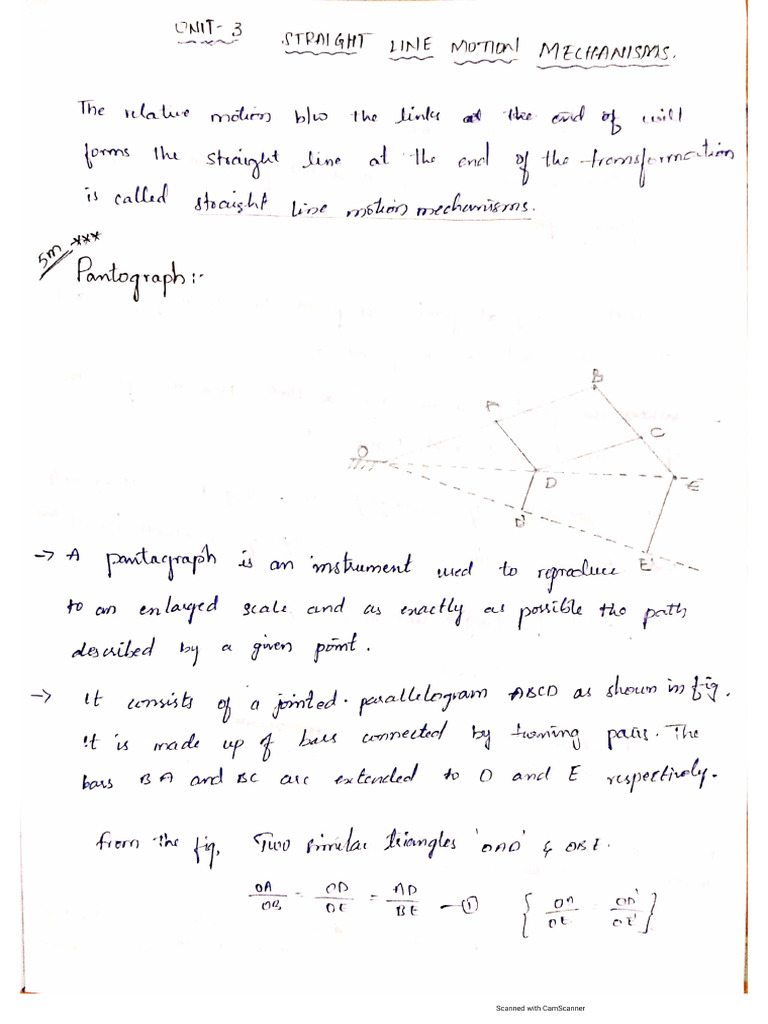 UNIT-3 STRAIGHT LINE MOTION MECHANISMS.
The relative motion b/w the links at the end of will
forms the straight line at the end of the transformation
is called straight line motion mechanisms.
5m ***
Pantograph:-
B
A
C
O
D
E
D'
E'
→ A pantagraph is an instrument used to reproduce
to an enlarged scale and as exactly as possible the path
described by a given point.
→ It consists of a jointed parallelogram ABCD as shown in fig.
it is made up of bars connected by turning pairs. The
bars BA and BC are extended to O and E respectively.
from the fig, Two similar triangles 'OAD' & OBE.
OA/OB = OD/OE = AD/BE —① { OD/OE OD'/OE' }
Scanned with CamScanner